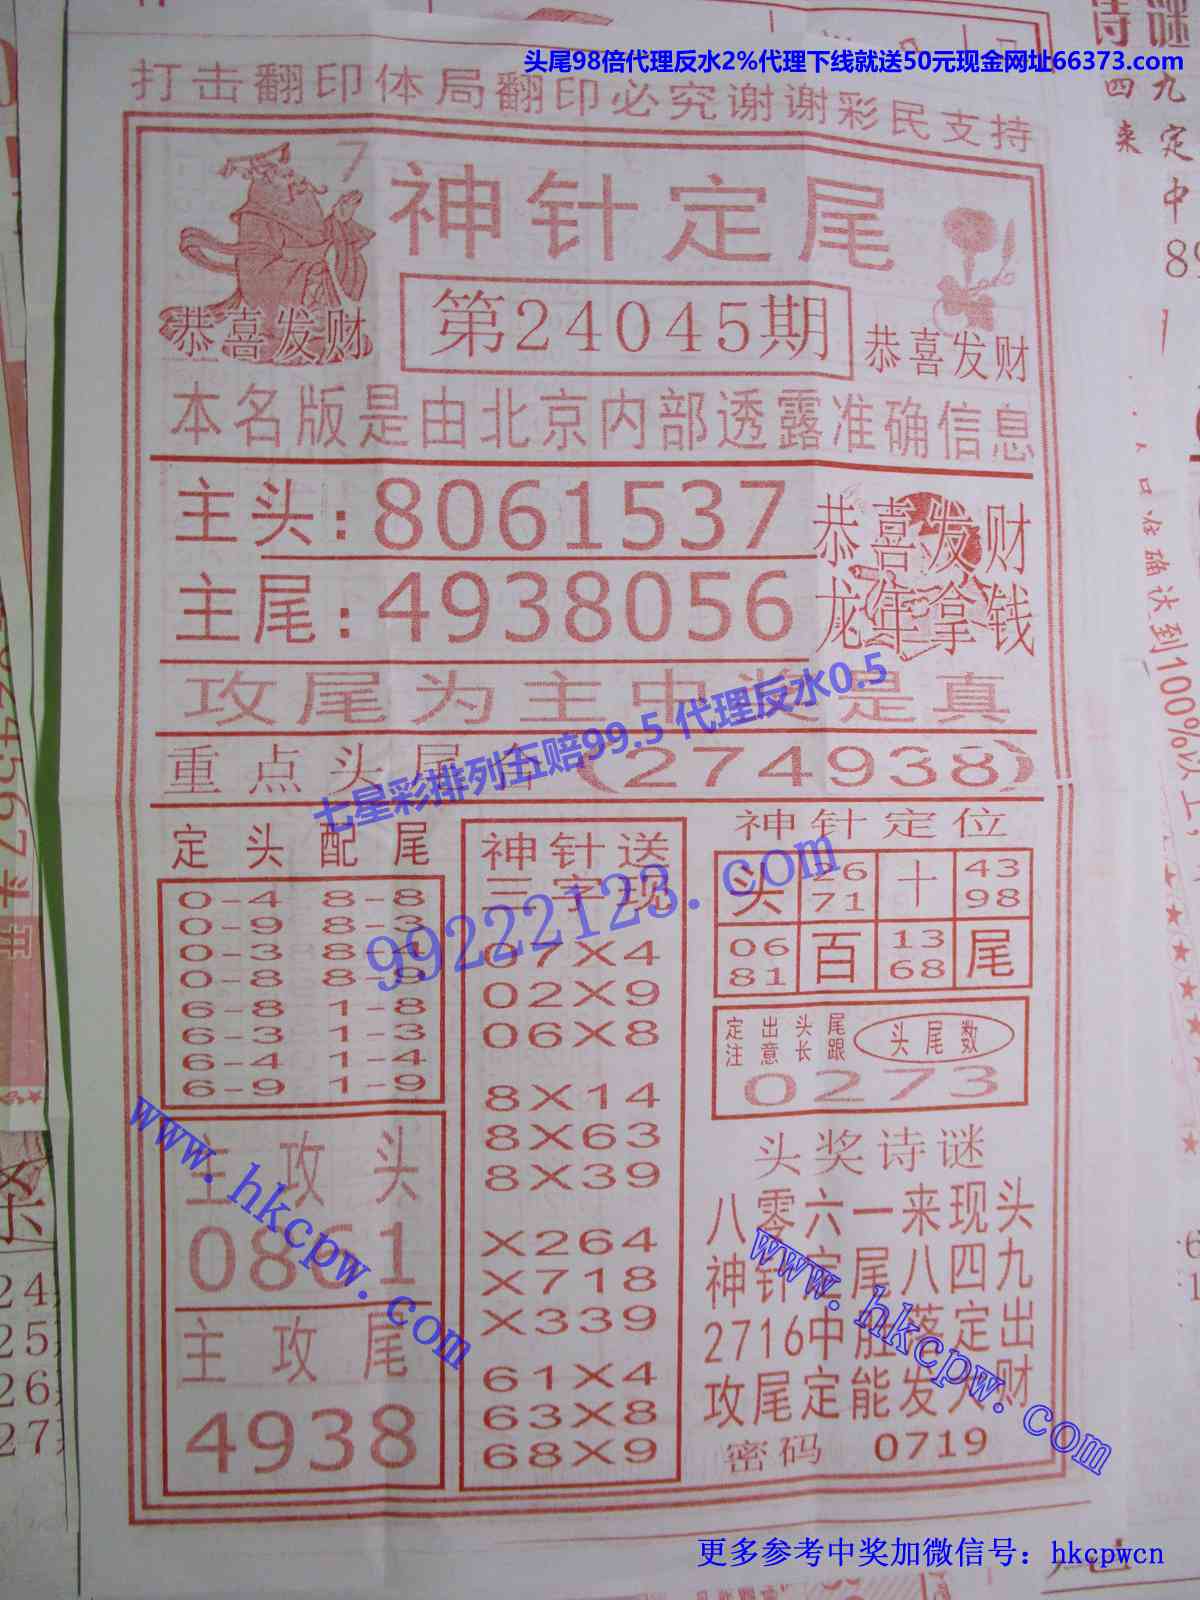 头尾98倍代理反水2%代理下线就送50元现金网址66373.com
打击翻印体局翻印必究谢谢彩民支持
7
神针定尾
第24045期
恭喜发财
恭喜发财
本名版是由北京内部透露准确信息
主头:8061537
主尾:4938056
恭喜发财
龙年拿钱
攻尾为主中奖是真
重点头尾合(274938)
七星彩排列五赔99.5 代理反水0.5
99222123.com
定头配尾
0-4 8-8
0-9 8-3
0-3 8-4
0-8 8-9
6-8 1-8
6-3 1-3
6-4 1-4
6-9 1-9
主攻头
0861
主攻尾
4938
神针送
三字现
07X4
02X9
06X8
8X14
8X63
8X39
X264
X718
X339
61X4
63X8
68X9
神针定位
头 26 71 十 43 98
06 81 百 13 68 尾
定出头尾
注意长跟
头尾数
0273
头奖诗谜
八零六一来现头
神针定尾八四九
2716中胜落定出
攻尾定能发大财
密码 0719
www.hkcpw.com
www.hkcpw.com
更多参考中奖加微信号：hkcpwcn
诗谜
四九
来定
中
到100%
24
25
26
27